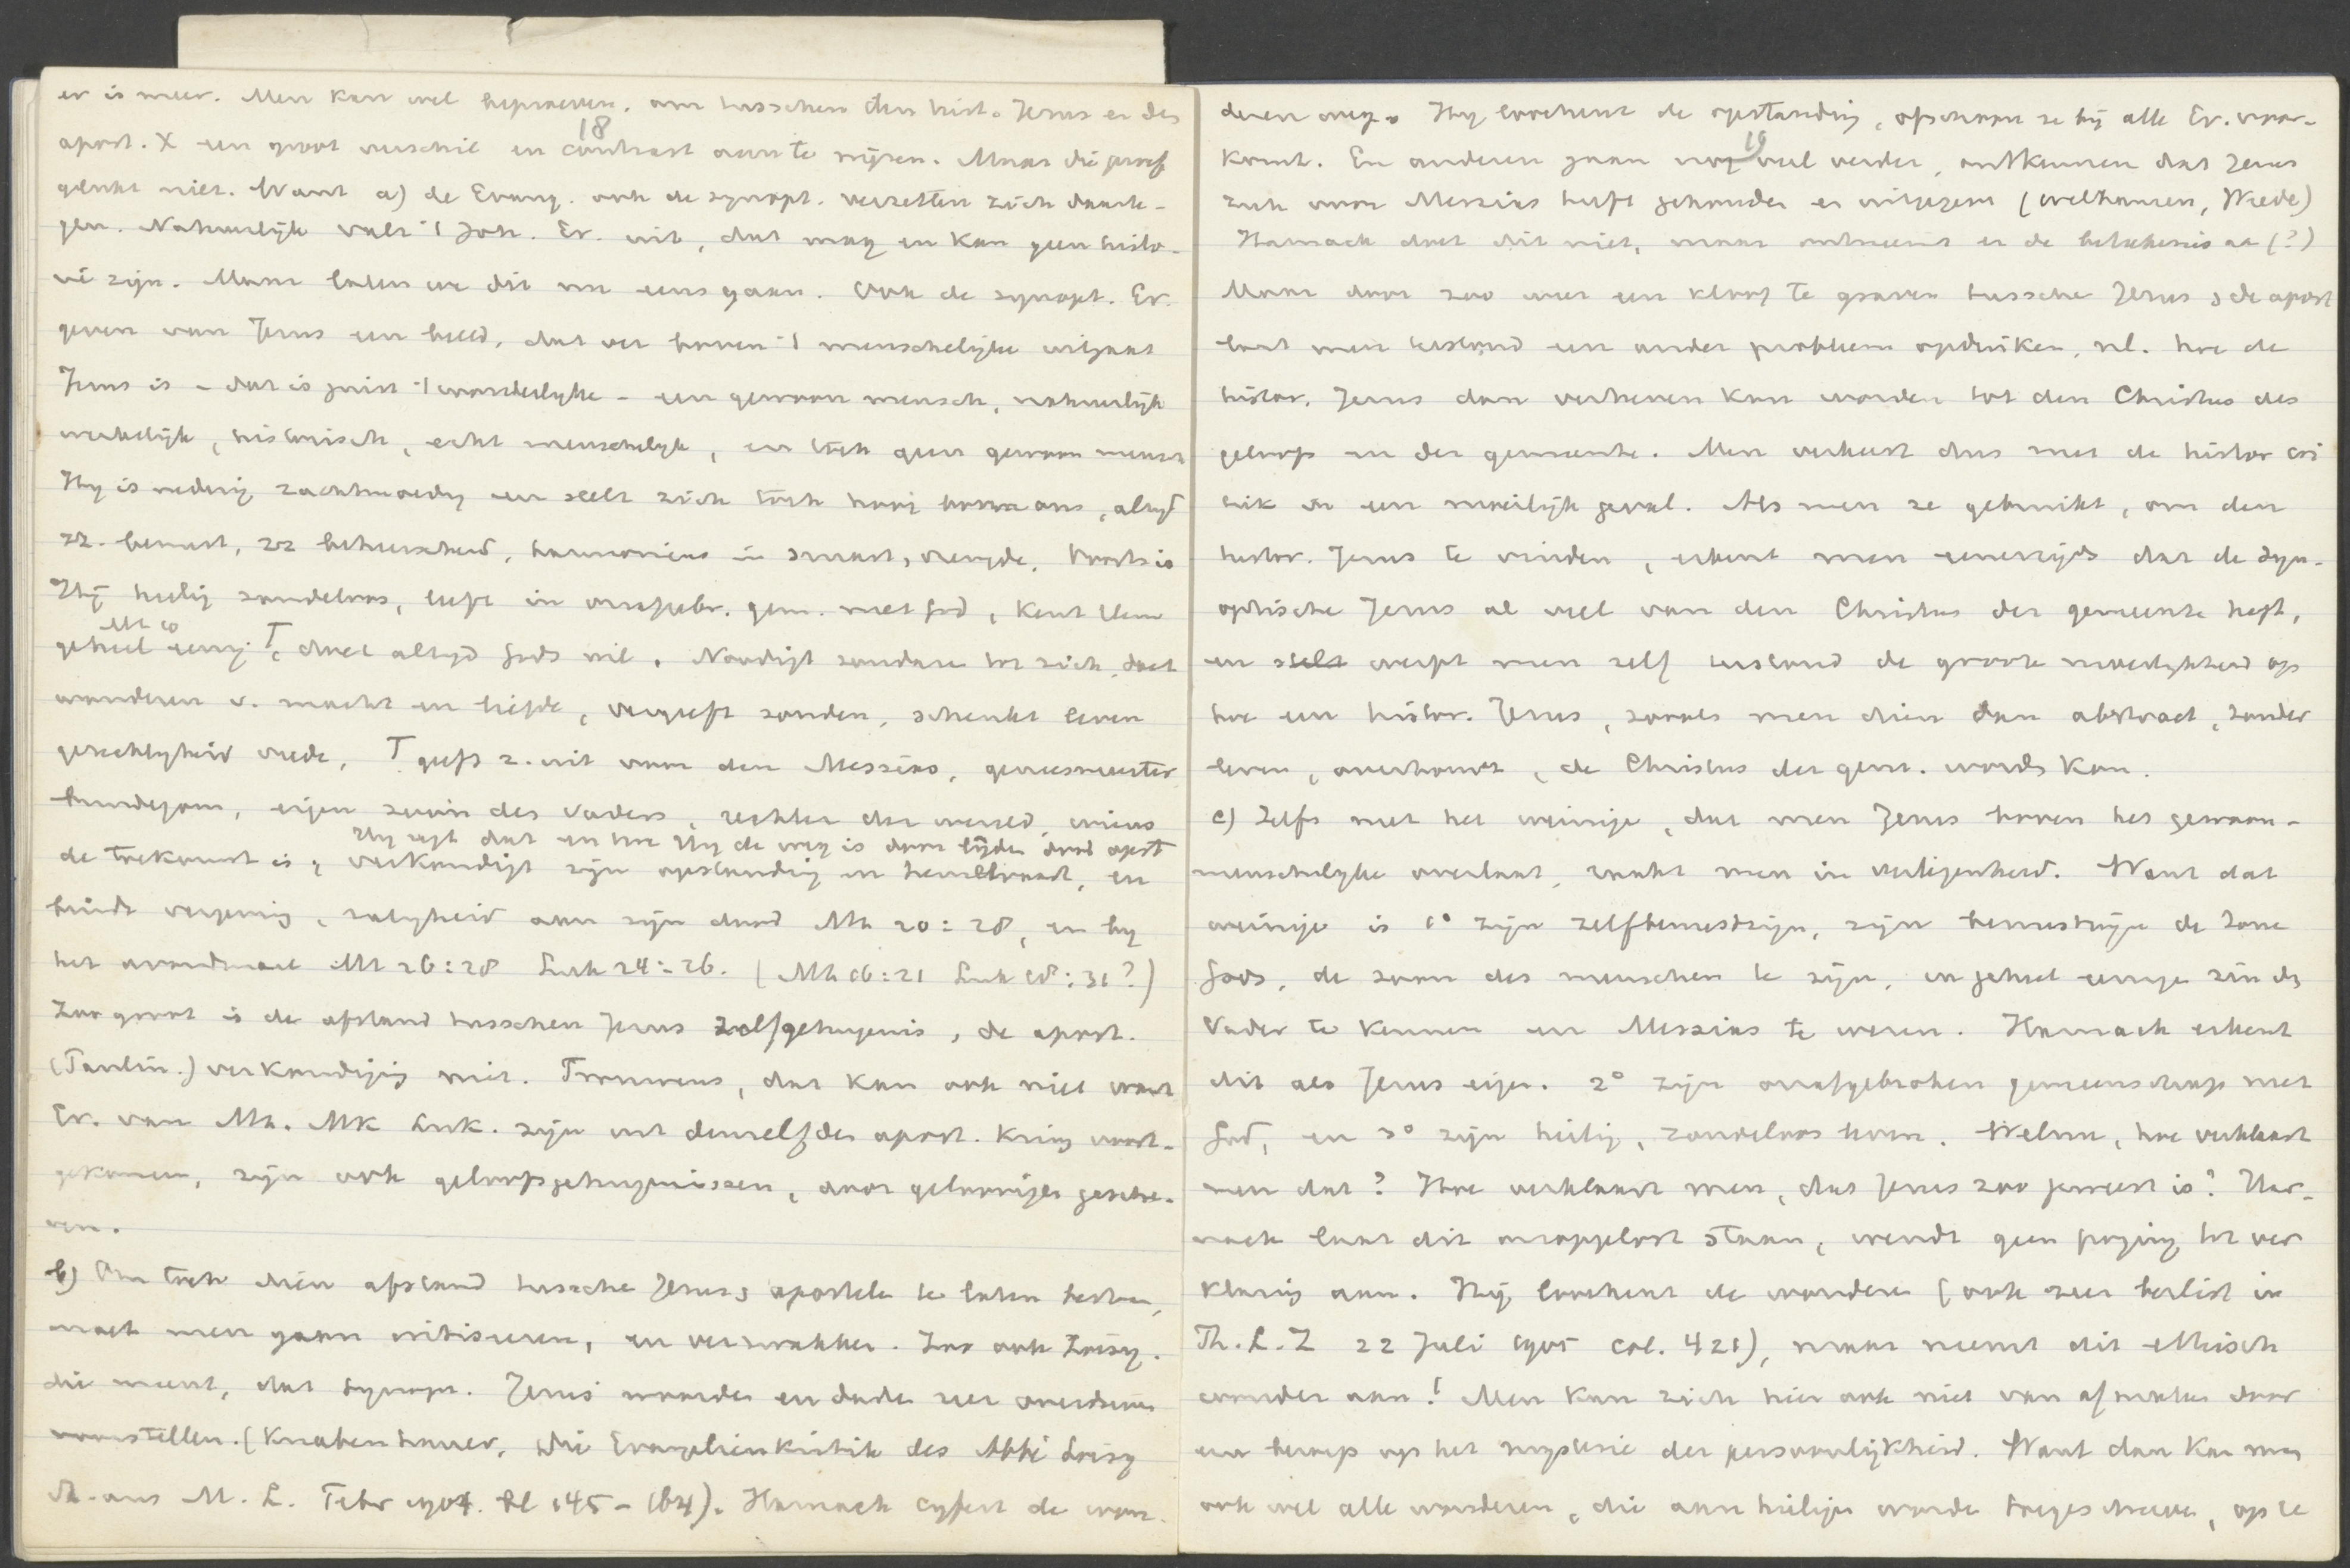 er is meer. Men kan wel beproeven, om tusschen den hist. Jezus en den
18
apost. X een groot verschil en contrast aan te wijzen. Maar die proef
gelukt niet. Want a) de Evang. ook de synopt. verzetten zich daarte-
gen. Natuurlijk valt 't Joh. Ev. uit, dat mag en kan geen histo-
rie zijn. Maar laten we dit nu eens gaan. Ook de synopt. Ev.
geven van Jezus een beeld, dat ver boven 't menschelijke uitgaat
Jezus is – dat is juist 't wonderlijke – een gewoon mensch, natuurlijk
werkelijk, historisch, echt menschelijk, en toch geen gewoon mensch
Hij is nederig zachtmoedig en stelt zich toch hoog boven ons, altijd
zz. bewust, zz beheerschend, harmonieus in smart, vreugde. Voorts is
Hij heilig zondeloos, leeft in onafgebr. gem. met God, kent Hem
Mt 10
geheel eenig T, doet altijd Gods wil. Noodigt zondaren tot zich, doet
wonderen v. macht en liefde, vergeeft zonden, schenkt leven
gerechtigheid vrede, T geeft z. uit voor den Messias, geneesmeester
bruidegom, eigen zoon des Vaders, rechter der wereld, wiens
Hij zegt dat en hoe Hij de weg is door lijden dood opst
de toekomst is, verkondigt zijn opstanding en hemelvaart, en
bindt vergeving, zaligheid aan zijn dood Mt 20:28, en bij
het avondmaal Mt 26:28 Luk 24:26. (Mt 16:21 Luk 18:31?)
Zoo groot is de afstand tusschen Jezus zelfgetuigenis, de apost.
(Paulin.) verkondiging niet. Trouwens, dat kan ook niet want
Ev. van Mt. Mk Luk. zijn uit denzelfden apost. kring voort-
gekomen, zijn ook geloofsgetuigenissen, door geloovigen geschre-
ven.
b) Om toch dien afstand tussche Jezus, apostelen te laten bestaan,
moet men gaan critiseeren, en verzwakken. Zoo ook Loisy.
die meent, dat synopt. Jezus woorden en daden zeer overdreven
voorstellen. (Knabenbauer, Die Evangelienkritik des Abbé Loisy
St. aus M. L. Febr 1904. bl 145–164). Harnack cijfert de won-
deren weg. Hij loochent de opstanding, ofschoon ze bij alle Ev. voor-
19
komt. En anderen gaan nog veel verder, ontkennen dat Jezus
zich voor Messias heeft gehouden en uitgegeven (Wellhausen, Wrede)
Harnack doet dit niet, maar ontneemt er de beteekenis aa (?)
Maar door zoo weer een kloof te graven tussche Jezus, de apost
laat men terstond een ander probleem opduiken, nl. hoe de
histor. Jezus dan verheven kan worden tot den Christus des
geloofs in der gemeente. Men verkeert dus met de histor cri
tiek in een moeilijk geval. Als men ze gebruikt, om den
histor. Jezus te vinden, erkent men eenerzijds dat de syn-
optische Jezus al veel van den Christus der gemeente heeft,
en stelt werpt men zelf terstond de groote moeilijkheid op
hoe een histor. Jezus, zooals men dien dan abstract, zonder
leven, overhoudt, de Christus der gem. worden kan.
c) Zelfs met het weinige, dat men Jezus boven het gewoon-
menschelijke overlaat, raakt men in verlegenheid. Want dat
weinige is 1° zijn zelfbewustzijn, zijn bewustzijn de Zone
Gods, de zoon des menschen te zijn, in geheel eenige zin de
Vader te kennen en Messias te wezen. Harnack erkent
dit als Jezus eigen. 2° zijn onafgebroken gemeenschap met
God, en 3° zijn heilig, zondeloos leven. Welnu, hoe verklaart
men dat? Hoe verklaart men, dat Jezus zoo geweest is? Har-
nack laat dit onopgelost staan, wendt geen poging tot ver
klaring aan. Hij loochent de wonderen (ook zeer beslist in
Th. L. Z 22 Juli 1905 col. 421), maar neemt dit ethisch
wonder aan! Men kan zich hier ook niet van afmaken door
een beroep op het mysterie der persoonlijkheid. Want dan kan men
ook wel alle wonderen, die aan heiligen worde toegeschreve, op re